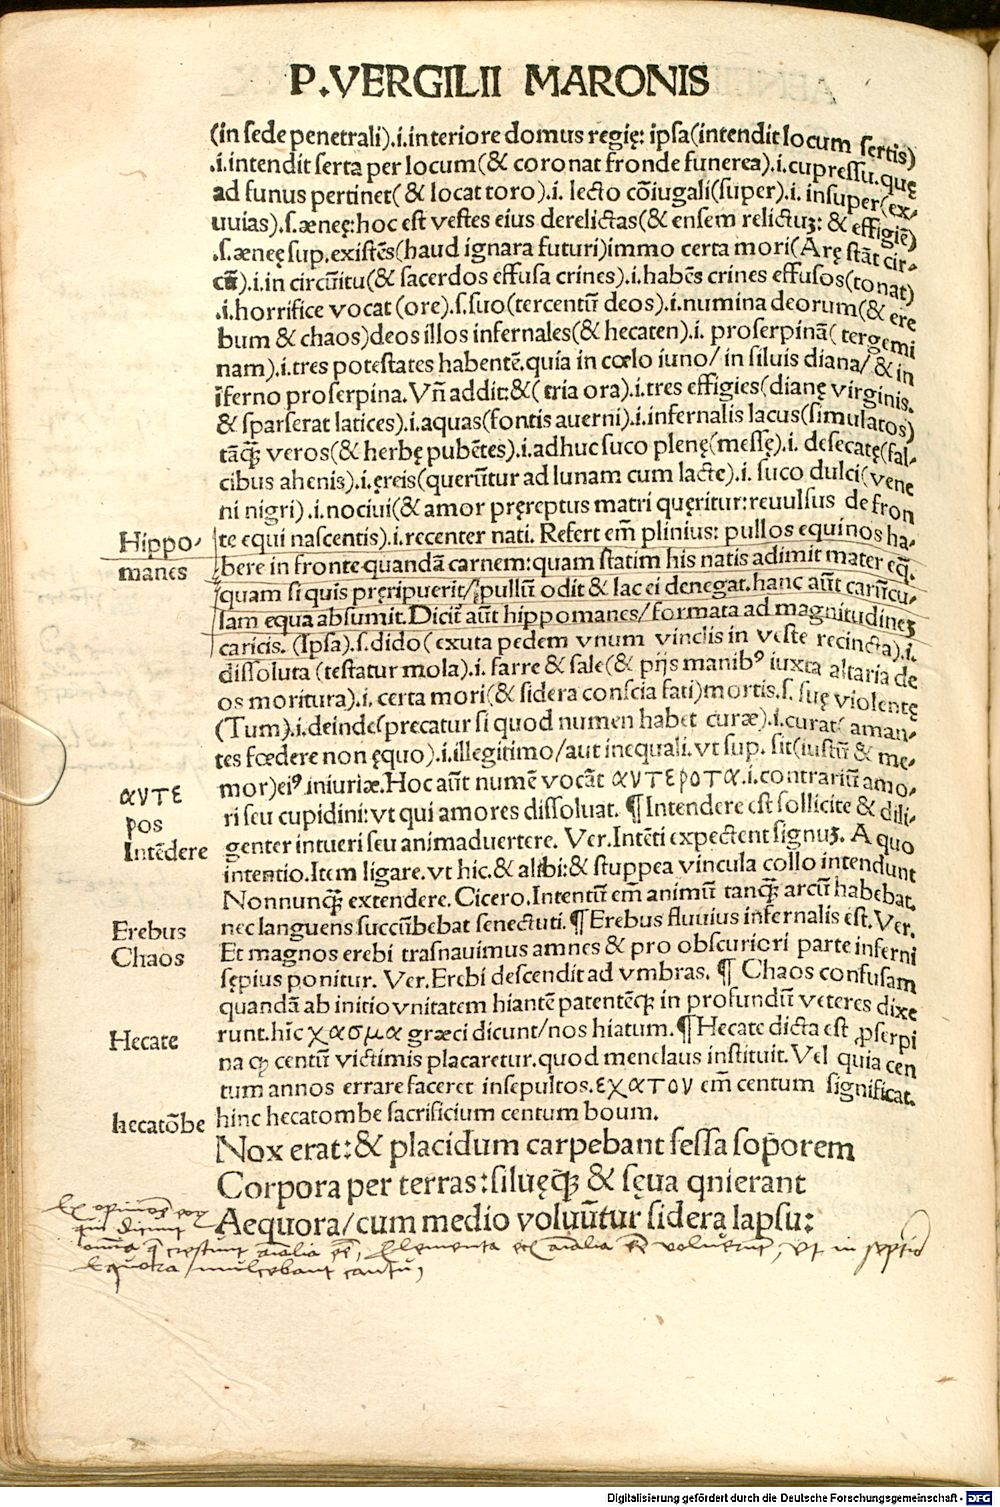 P.VERGILII MARONIS
(in sede penetrali).i.interiore domus regię: ipsa(intendit locum sertis)
.i.intendit serta per locum(& coronat fronde funerea).i.cupressu.quę
ad funus pertinet( & locat toro).i. lecto cōiugali(super).i. insuper(ex-
uuias).s.æneę: hoc est vestes eius derelictas(& ensem relictuʒ: & effigiē)
.s.æneę sup.existēs(haud ignara futuri)immo certa mori(Arę stāt cir-
cū).i.in circūitu(& sacerdos effusa crines).i.habēs crines effusos(tonat)
.i.horrifice vocat (ore).s.suo(tercentū deos).i.numina deorum(& ere
bum & chaos)deos illos infernales(& hecaten).i. proserpinā( tergemi
nam).i.tres potestates habentē.quia in cœlo iuno/ in siluis diana/ & in
īferno proserpina. Vñ addit:&( tria ora).i.tres effigies(dianę virginis.
& sparserat latices).i.aquas(fontis auerni).i.infernalis lacus(simulatos)
tāꝗ veros(& herbę pubētes).i.adhuc suco plenę(messę).i. desecatę(fal-
cibus ahenis).i.ęreis(querūtur ad lunam cum lacte).i. suco dulci(vene
ni nigri).i.nociui(& amor pręreptus matri quęritur: reuulsus de fron
Hippo- te equi nascentis).i.recenter nati. Refert em̄ plinius: pullos equinos ha-
manes bere in fronte quandā carnem: quam statim his natis adimit mater eq̄.
quam si quis pręripuerit/ pullū odit & lac ei denegat. hanc aūt carūcu-
lam equa absumit. Dicit̄ aūt hippomanes/ formata ad magnitudineʒ
caricis. (Ipsa).s.dido( exuta pedem vnum vinclis in veste recincta).i.
dissoluta (testatur mola).i. farre & sale(& pijs manibꝰ iuxta altaria de
os moritura).i. certa mori(& sidera conscia fati)mortis.s. suę violentę
(Tum).i.deinde(precatur si quod numen habet curæ).i.curat( aman-
tes fœdere non ęquo).i.illegitimo/aut inequali. vt sup. sit(iustū & me-
mor)eiꝰ iniuriæ. Hoc aūt numē vocāt αντεροτα.i.contrariū amo-
αντε ri seu cupidini: vt qui amores dissoluat. ¶ Intendere est sollicite & dili-
ρος
Intēdere genter intueri seu animaduertere. Ver. Intēti expectent signuʒ. A quo
intentio. Item ligare. vt hic.& alibi:& stuppea vincula collo intendunt
Nonnunꝗ extendere. Cicero. Intentū em̄ animū tanꝗ arcū habebat.
Erebus nec languens succūbebat senectuti. ¶ Erebus fluuius infernalis est. Ver.
Chaos Et magnos erebi trasnauimus amnes & pro obscuriori parte inferni
sępius ponitur. Ver. Erebi descendit ad vmbras. ¶ Chaos confusam
quandā ab initio vnitatem hiantē patentēꝗ in profundū veteres dixe
Hecate runt. hīc χασμα græci dicunt/nos hiatum. ¶ Hecate dicta est ꝓserpi
na ꝙ centū victimis placaretur. quod menelaus instituit. Vel quia cen
tum annos errare faceret insepultos. εχατον em̄ centum significat.
hecatōbe hinc hecatombe sacrificium centum boum.
Nox erat: & placidum carpebant fessa soporem
Corpora per terras: siluęꝗ & sęua qnierant
Aequora/ cum medio voluūtur sidera lapsu:
qui dicunt
Aequora / mulcebant cantu,
Digitalisierung gefördert durch die Deutsche Forschungsgemeinschaft - DFG